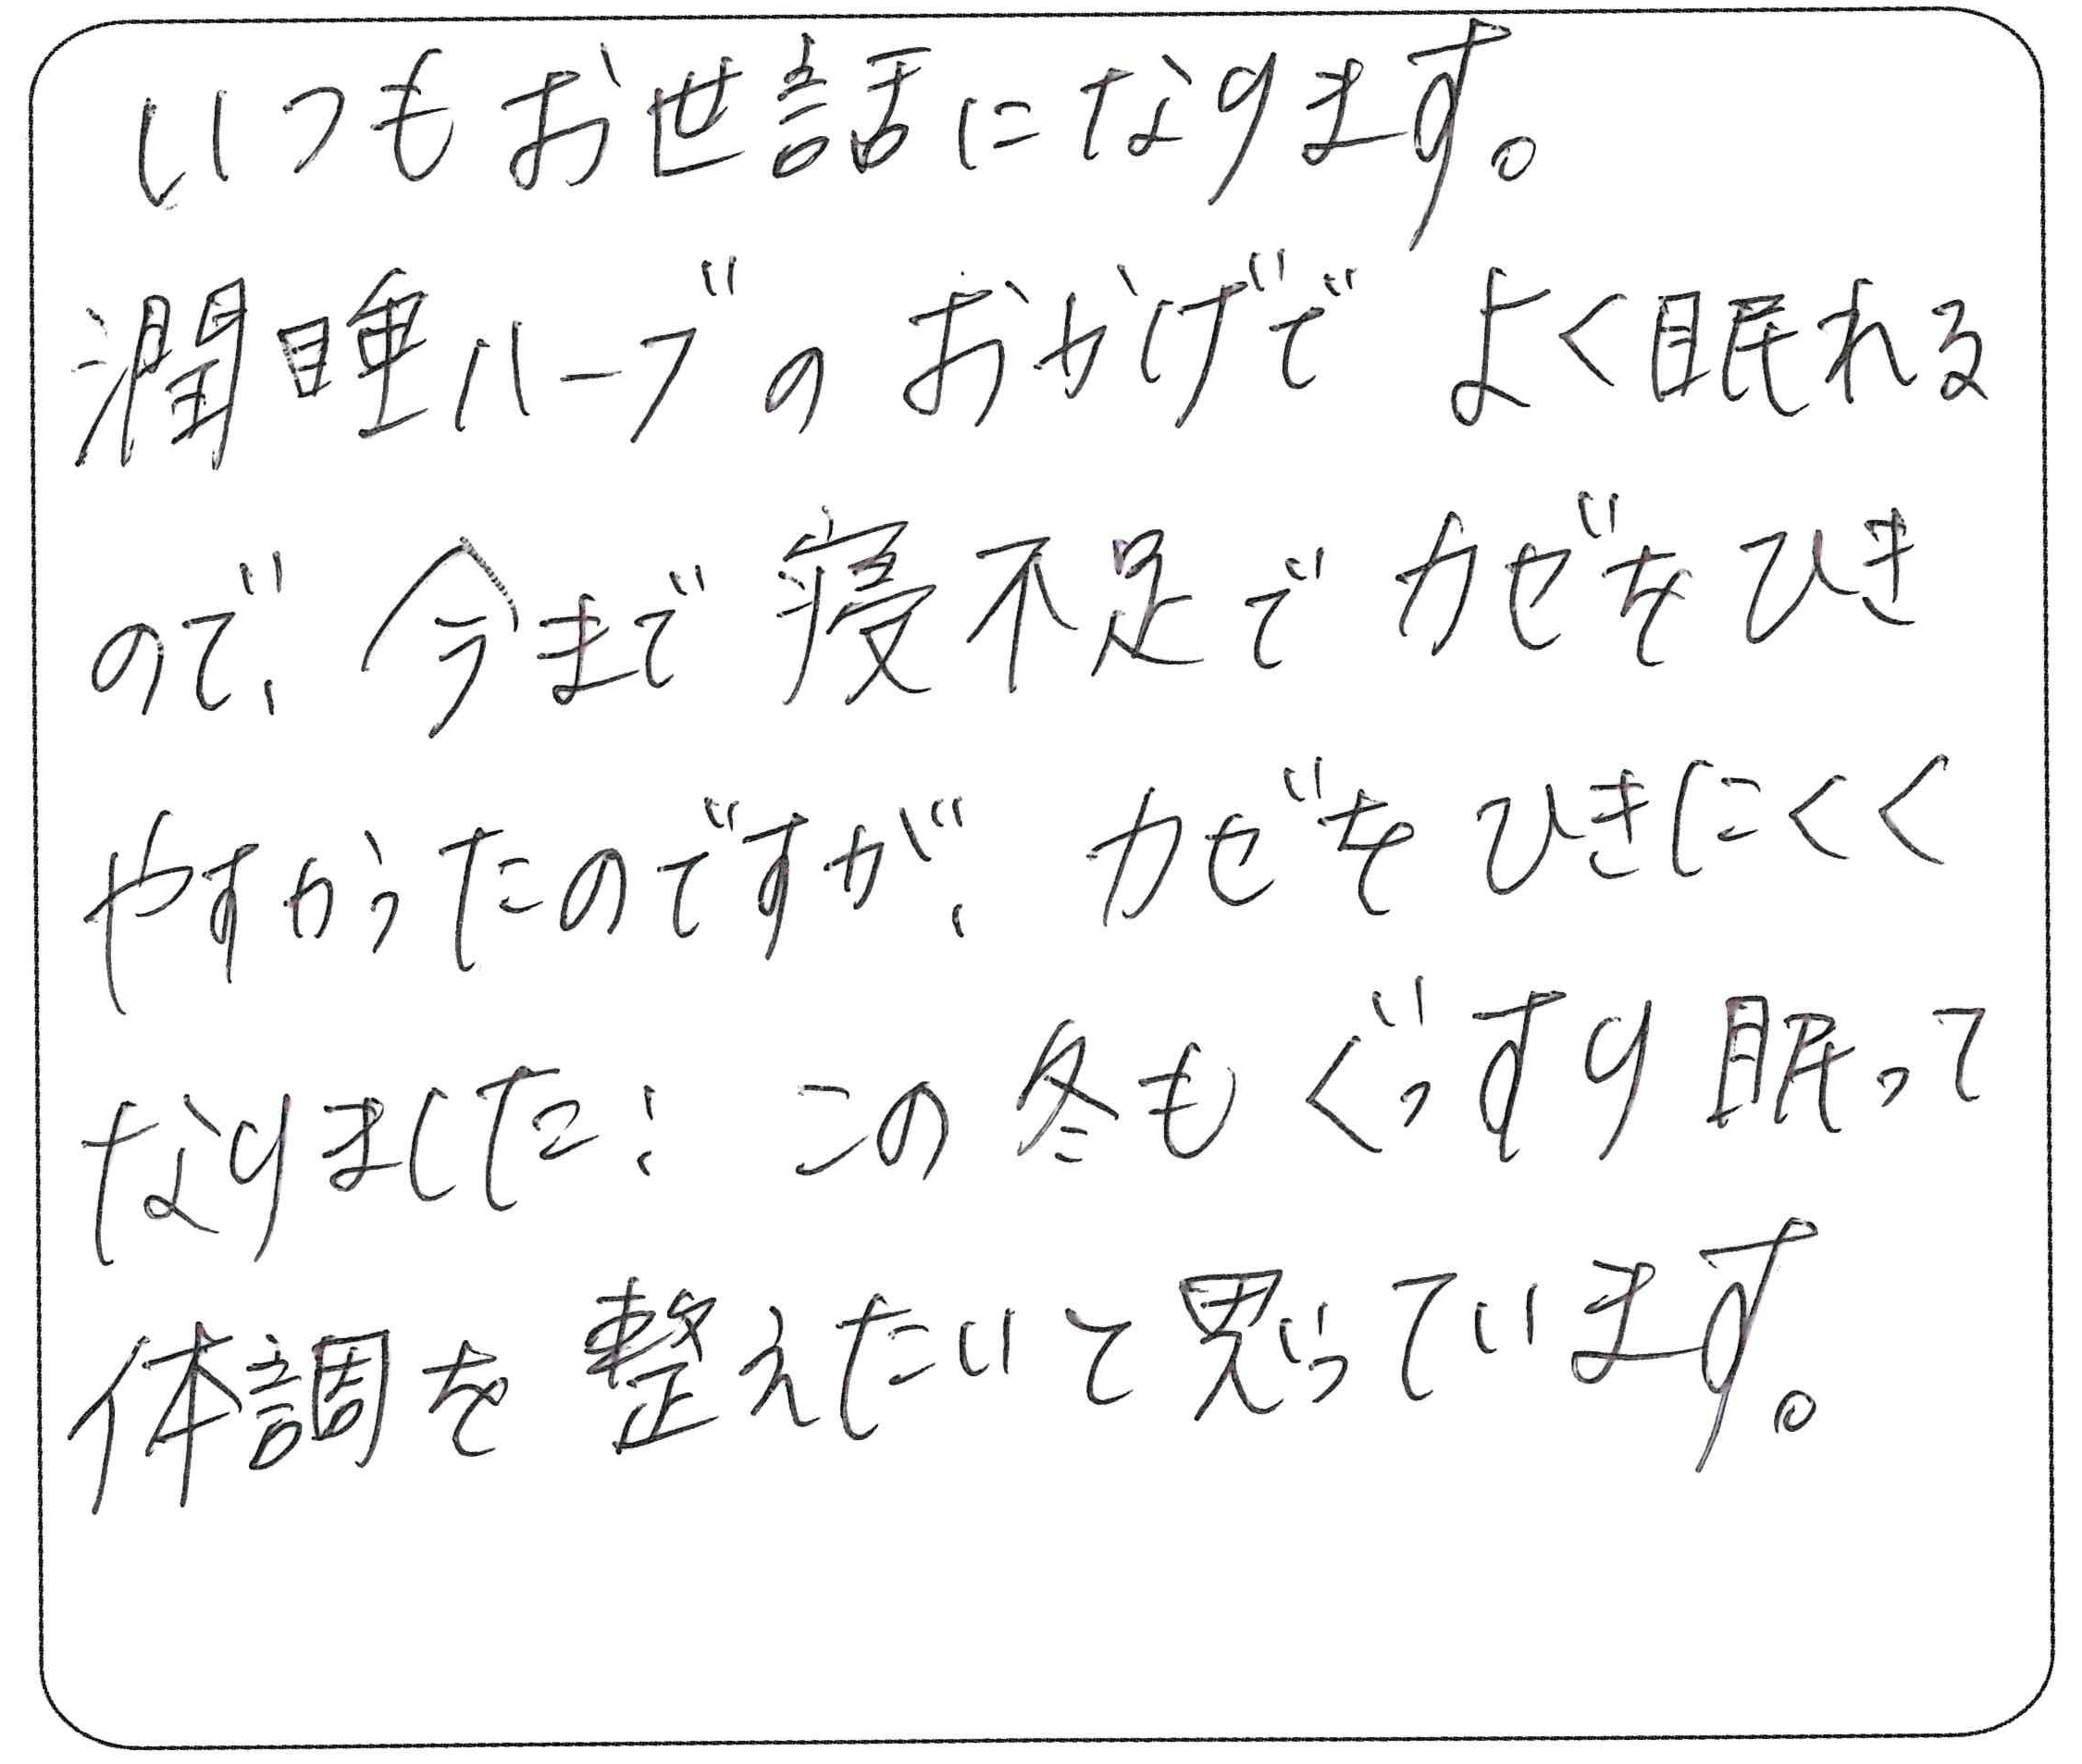 いつもお世話になります。
潤睡ハーブのおかげで よく眠れる
ので、今まで寝不足でカゼをひき
やすかったのですが、カゼをひきにくく
なりました。この冬もぐっすり眠って
体調を整えたいと思っています。